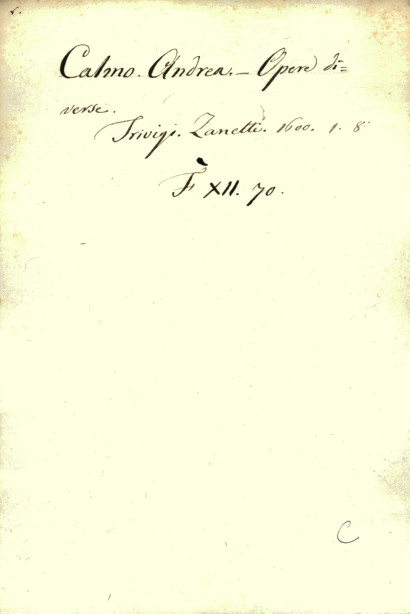 Calmo. Andrea. – Opere di=
verse.
Trivigi. Zanetti. 1600. 1. 8°
F XII. 70.
C